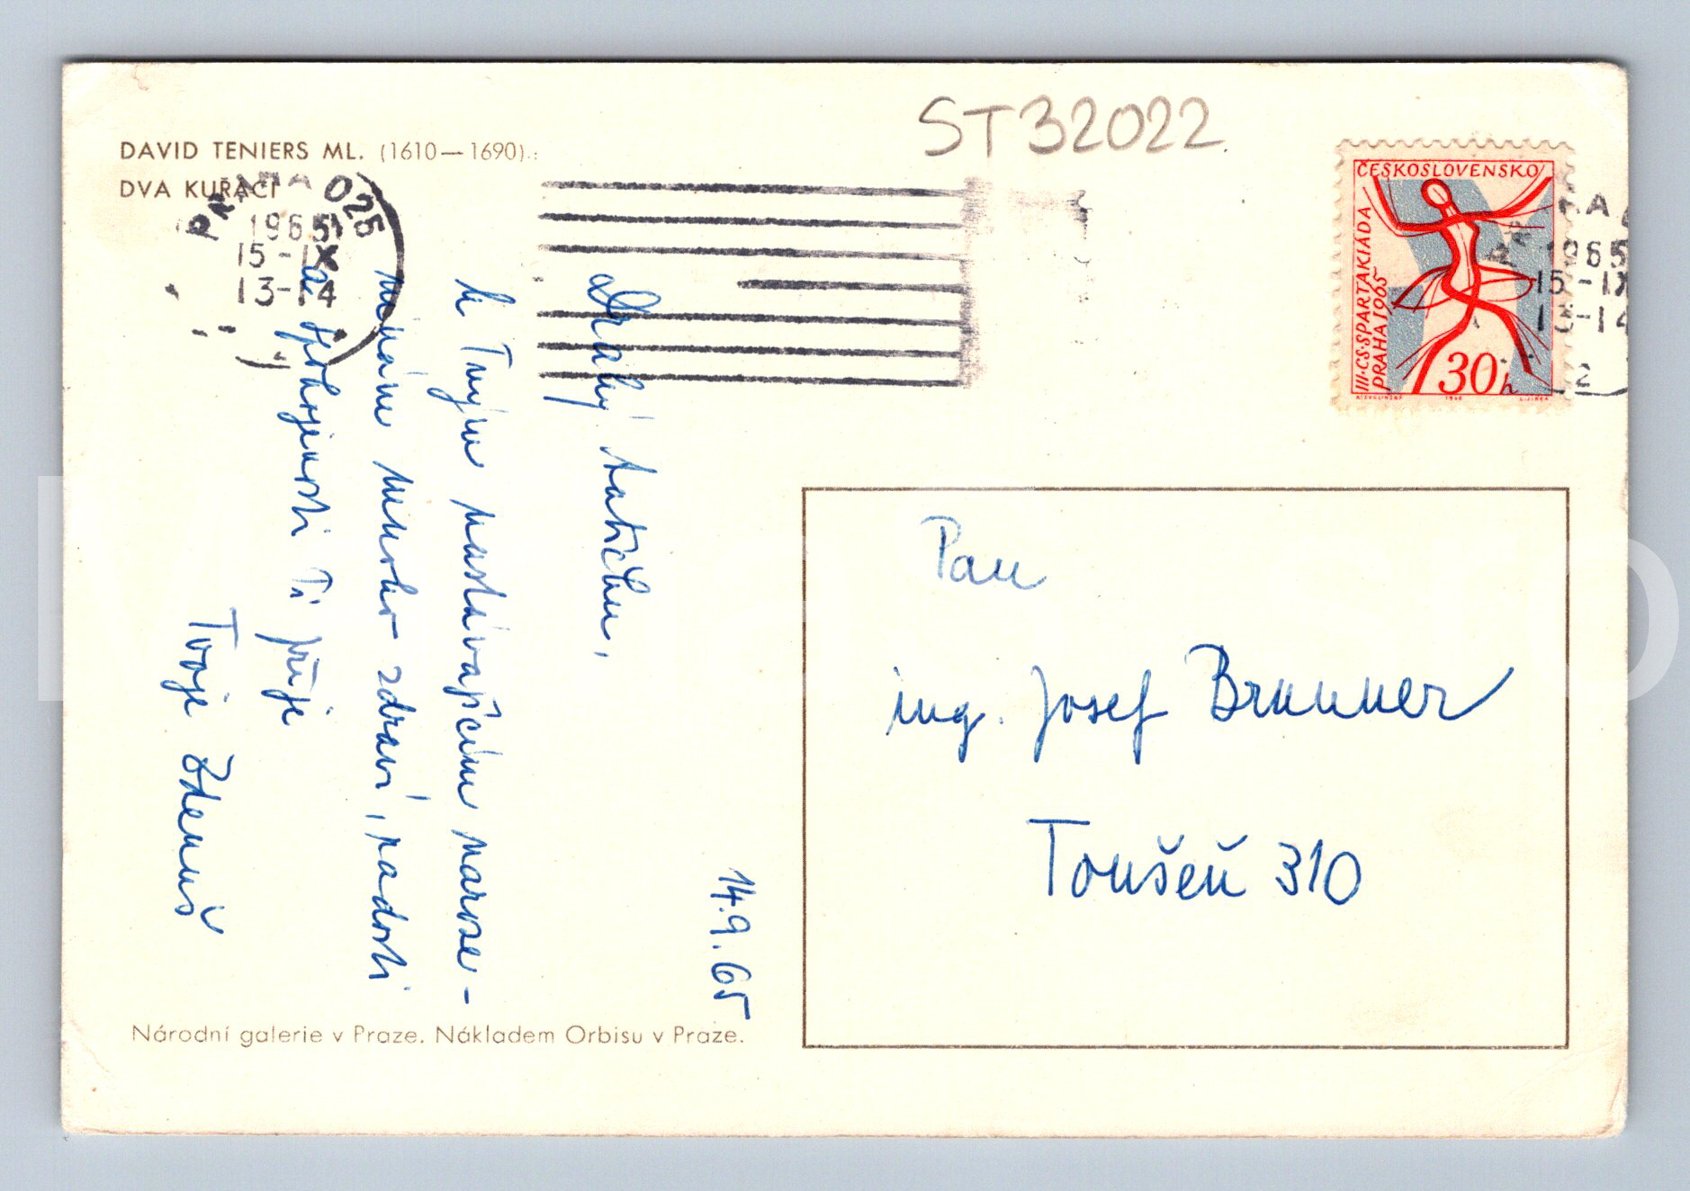 DAVID TENIERS ML. (1610—1690).:
DVA KUŘÁCI
ST32022
PRAHA 025
1965
15-IX
13-14
ČESKOSLOVENSKO
III.CS.SPARTAKIÁDA
PRAHA 1965
30h
1965
15-IX
13-14
2
14.9.65
Drahý tatíčku,
k Tvým nastávajícím naroze-
ninám mnoho zdraví, radosti
a spokojenosti Ti přeje
Tvoje Zdenuš
Pan
ing. Josef Brunner
Toušeň 310
Národní galerie v Praze. Nákladem Orbisu v Praze.